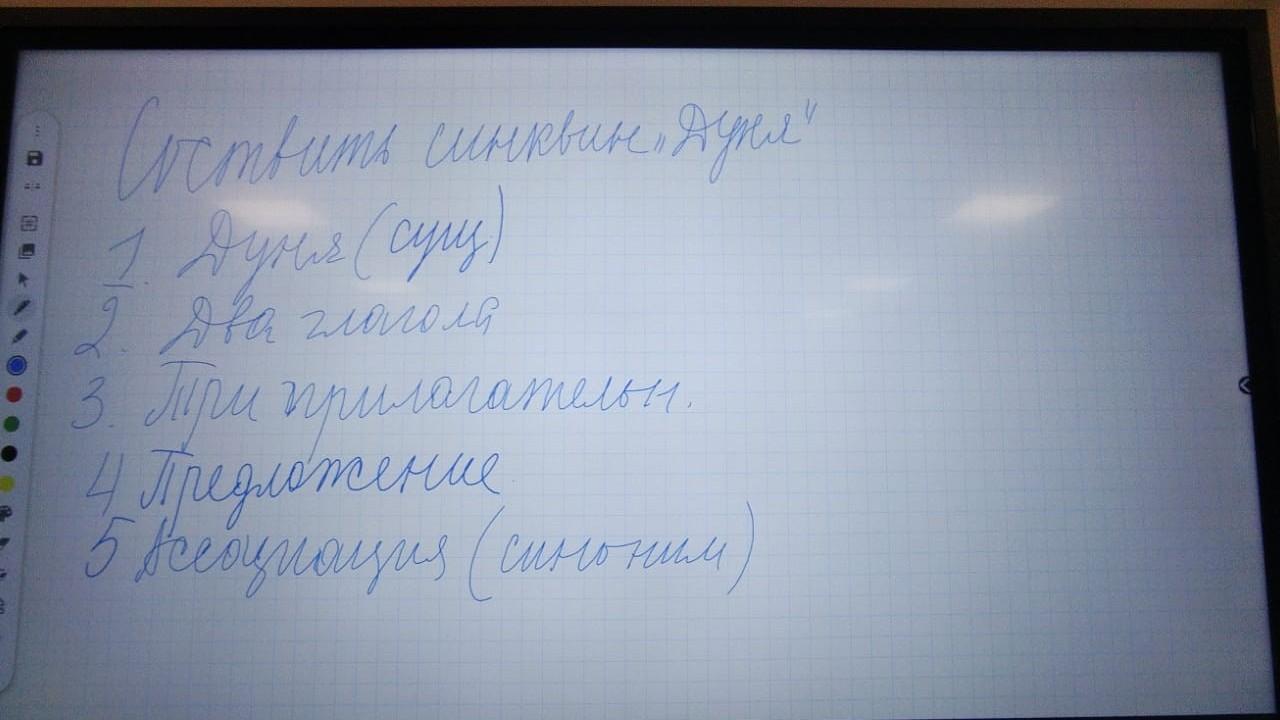 Составить синквин „Дуня"
1. Дуня (сущ)
2. Два глагола
3. Три прилагательн.
4 Предложение
5 Ассоциация (синоним)